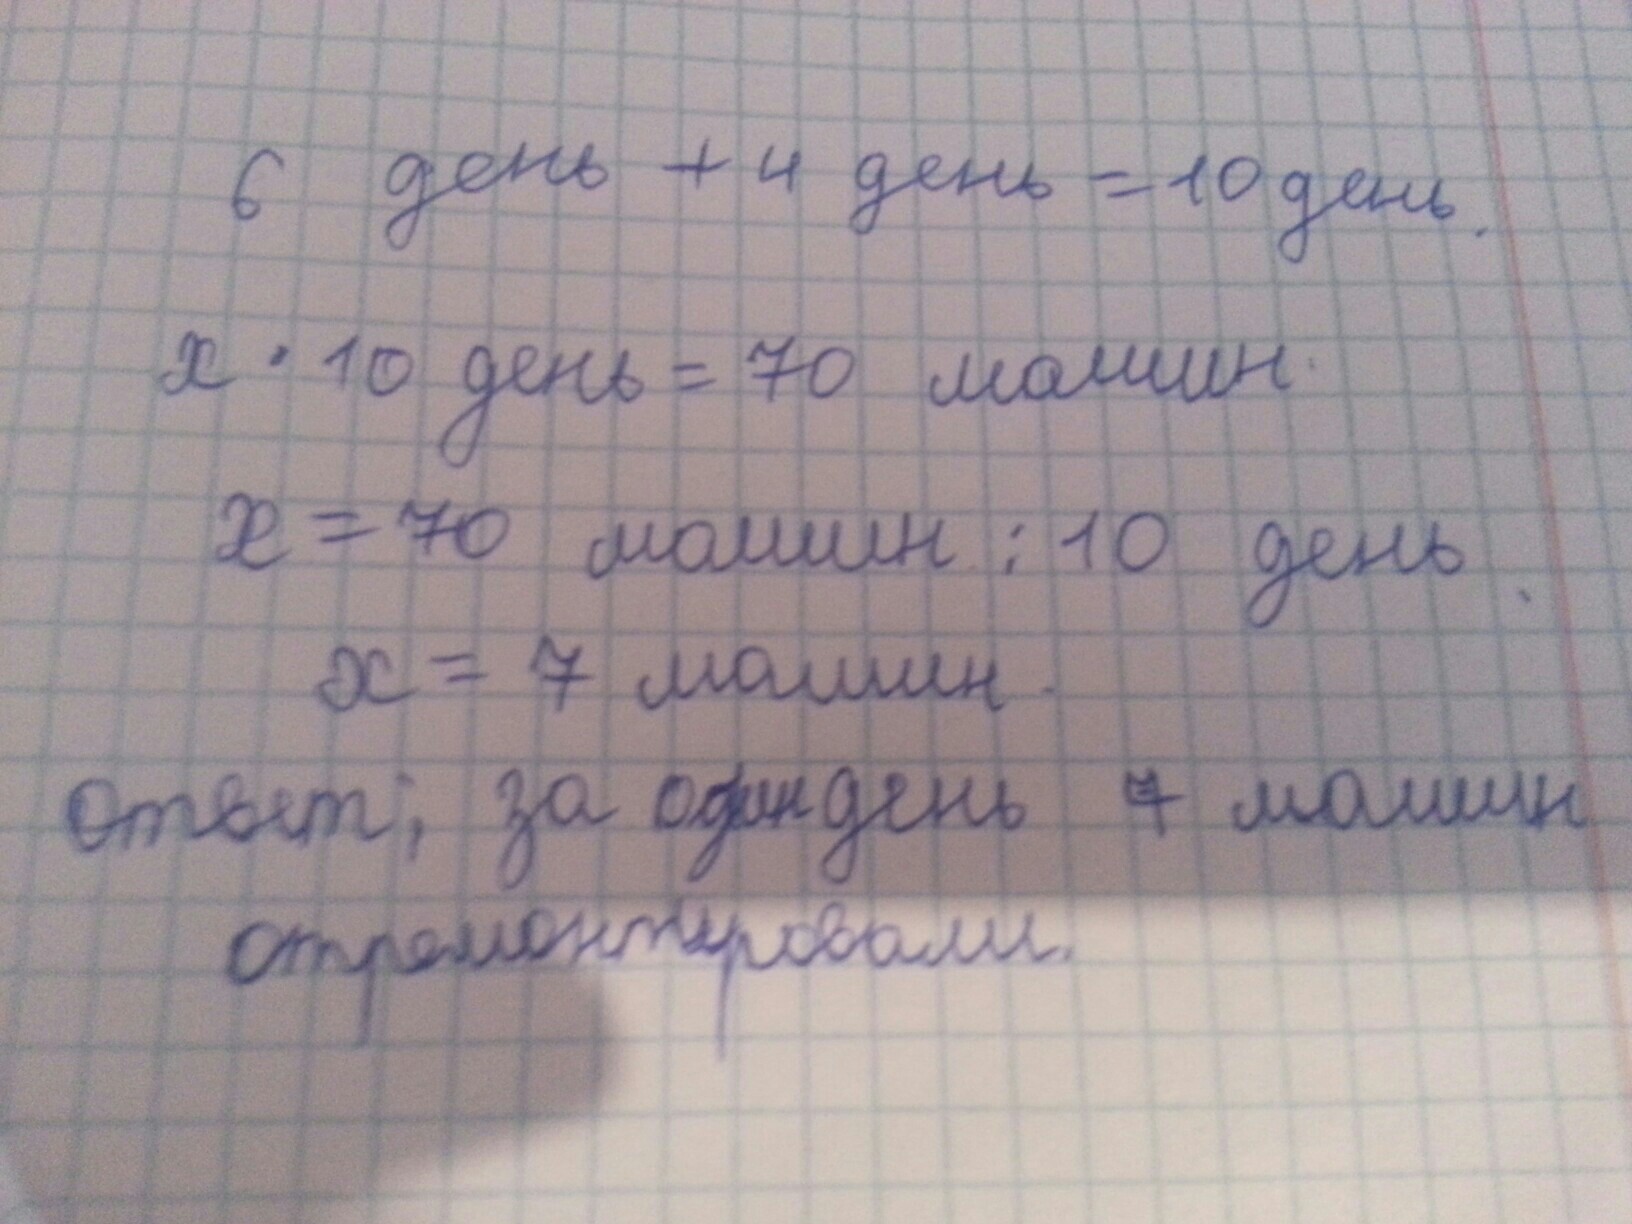 6 день + 4 день = 10 день.
х · 10 день = 70 машин.
х = 70 машин : 10 день.
х = 7 машин.
ответ; за один день 7 машин
отремонтировали.